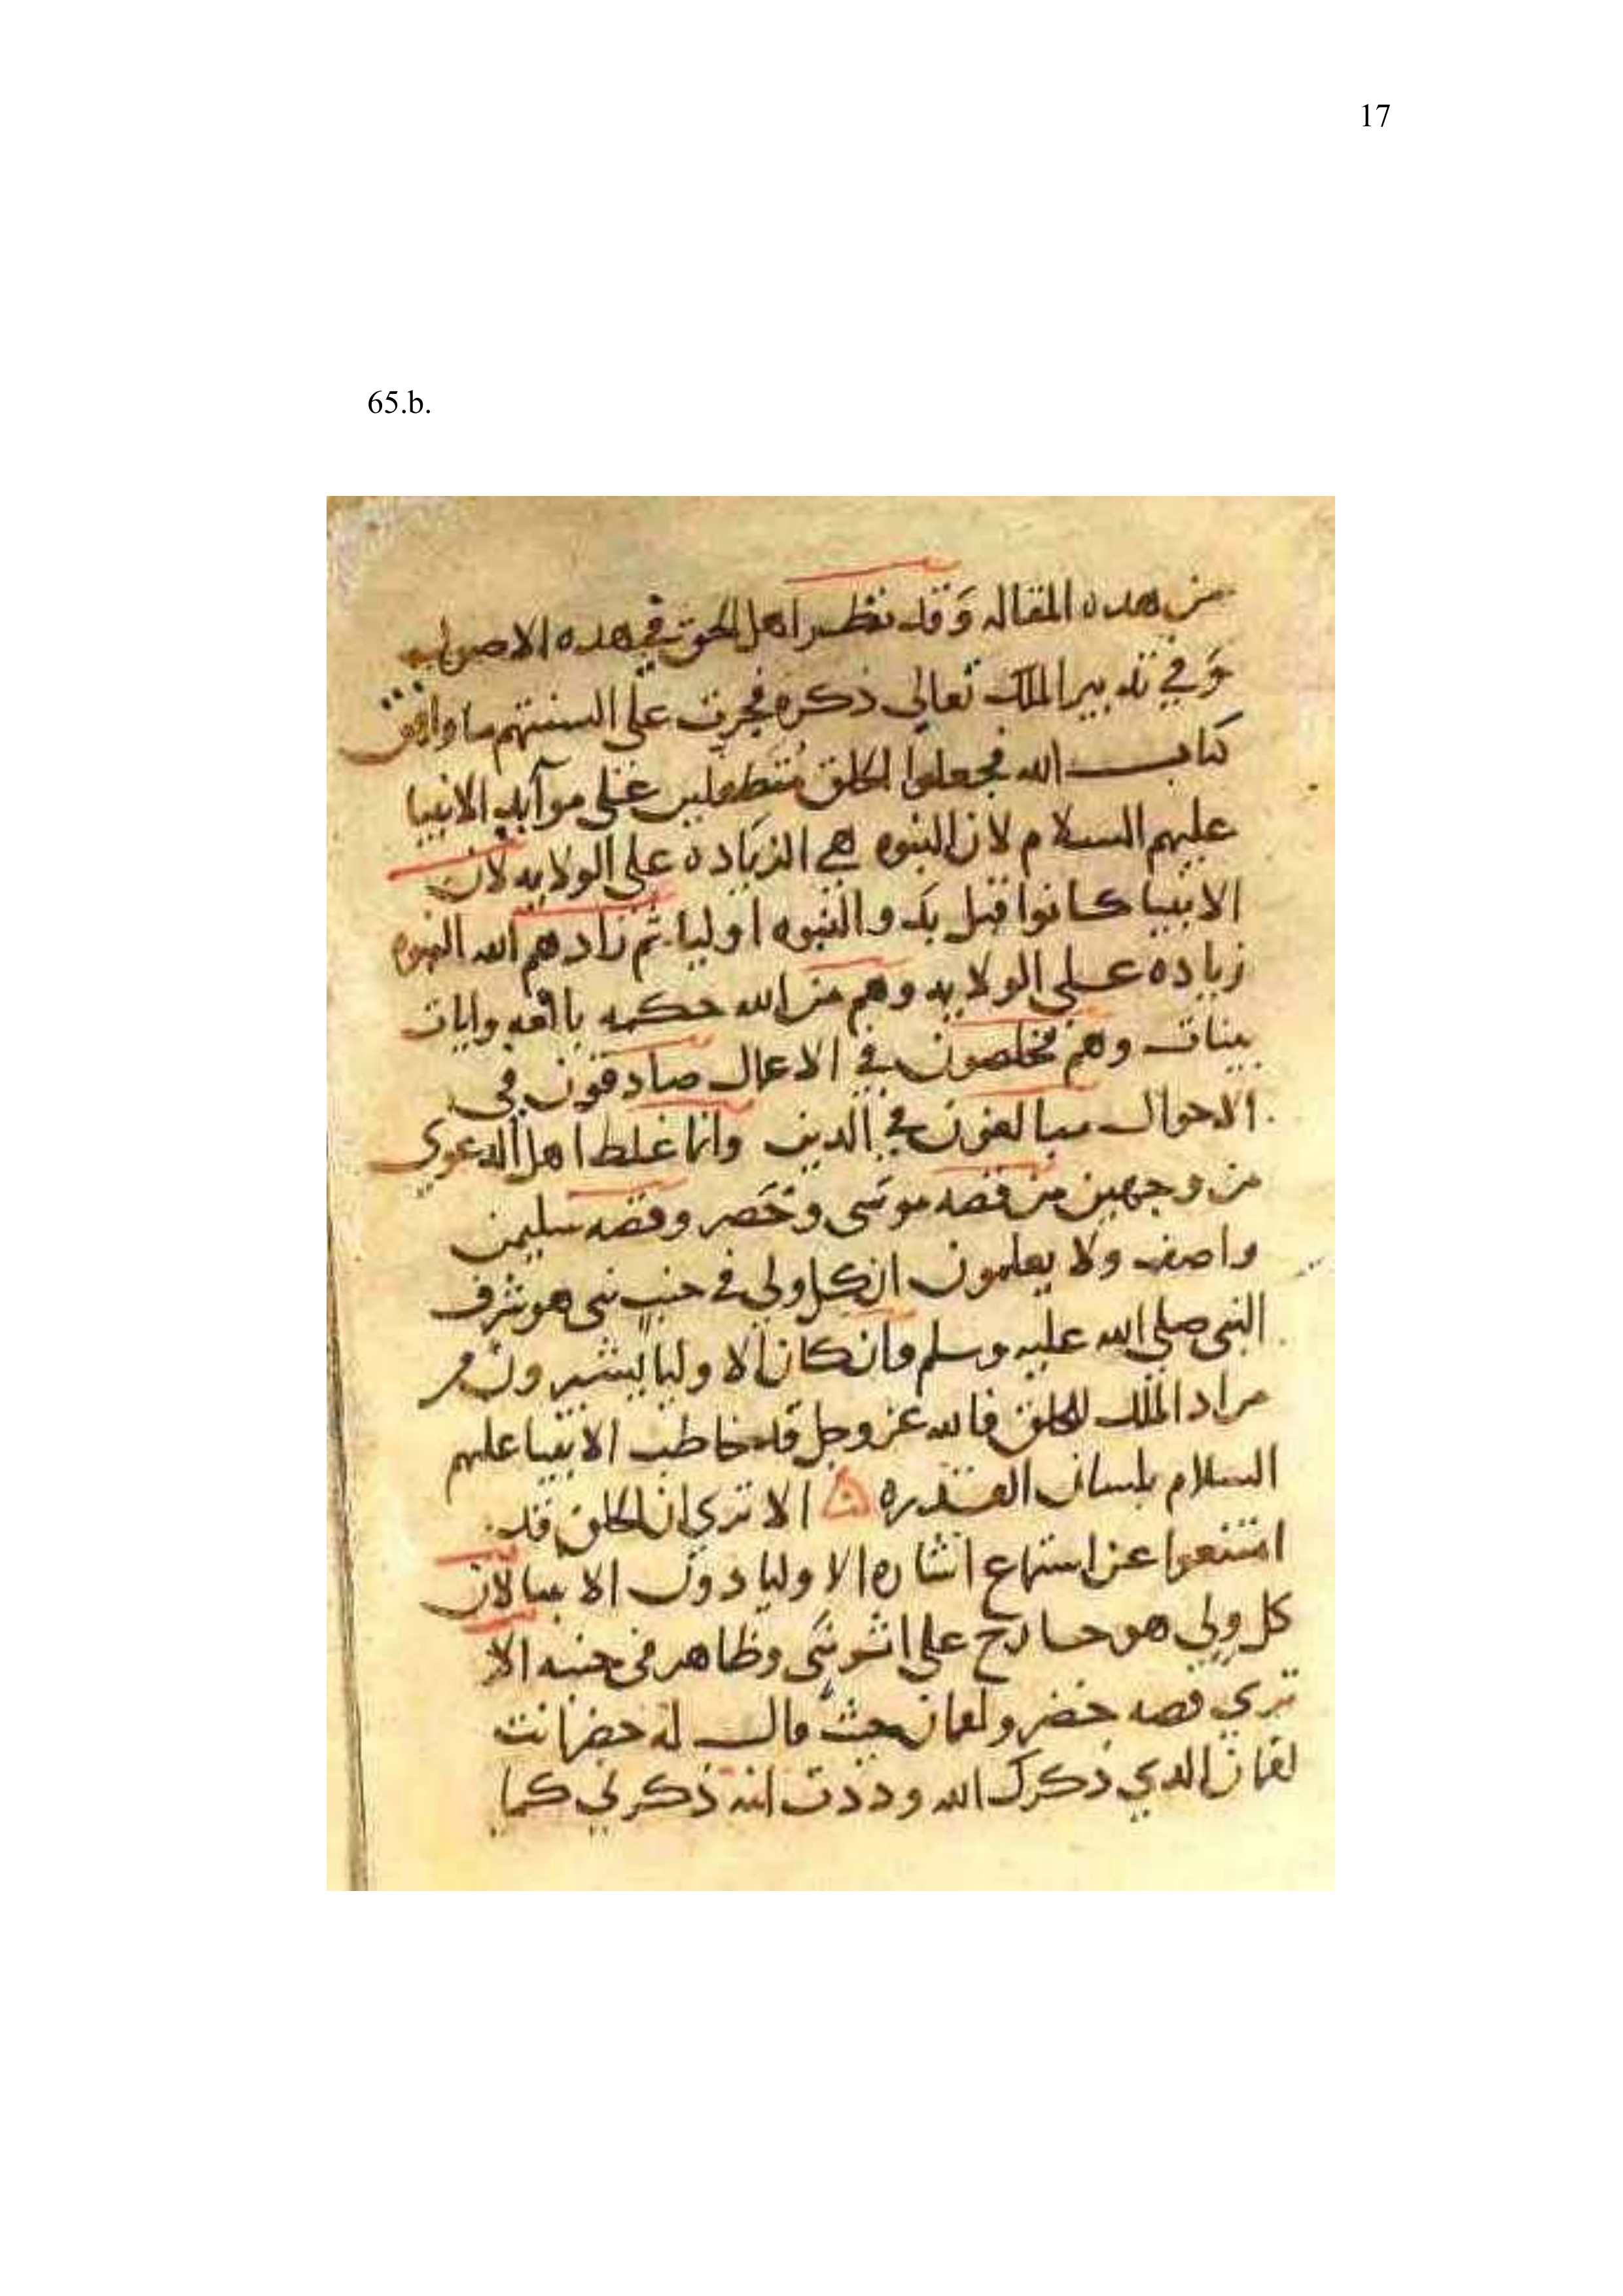 17
65.b.
من هده المقاله وقد نظر اهل الحق في هده الاصول
وفي تدبير الملك تعالي ذكره فجرت علي السنتهم ما وافق
كتاب الله فجعلوا الخلق متطفلين علي موآيد الانبيا
عليهم السلام لان النبوه هي الزياده علي الولايه لان
الانبيا كانوا قبل بدو النبوه اوليا ثم زادهم الله النبوه
زياده علي الولايه وهم من الله حكمه بالغه وايات
بينات وهم مخلصون في الاعمال صادقون في
الاحوال مبالغون في الدين وانما غلط اهل الدعوي
من وجهين من قصه موسى وخضر وقصه سليمن
واصف ولا يعلمون ان كل ولي في جنب نبي هو شرف
النبي صلي الله عليه وسلم وان كان الاوليا يشيرون من
مراد الملك للخلق فالله عز وجل قد خاطب الانبيا عليهم
السلام بلسان القدره الا تري ان الخلق قد
امتنعوا عن استماع اشاره الاوليا دون الانبيا لان
كل ولي هو على وظاهر في جنبه الا
تري قصه خضر ولقمان حيث قال له خضر انت
لقمان الدي ذكرك الله وددت انه ذكرني كما